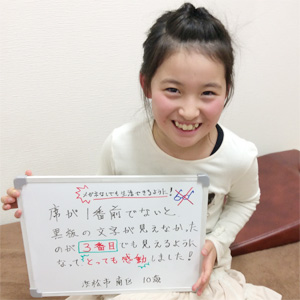 メガネなしでも生活できるように!
席が1番前でないと
黒板の文字が見えなかった
のが3番目でも見えるように
なってとっても感動しました!
浜松市南区 10歳